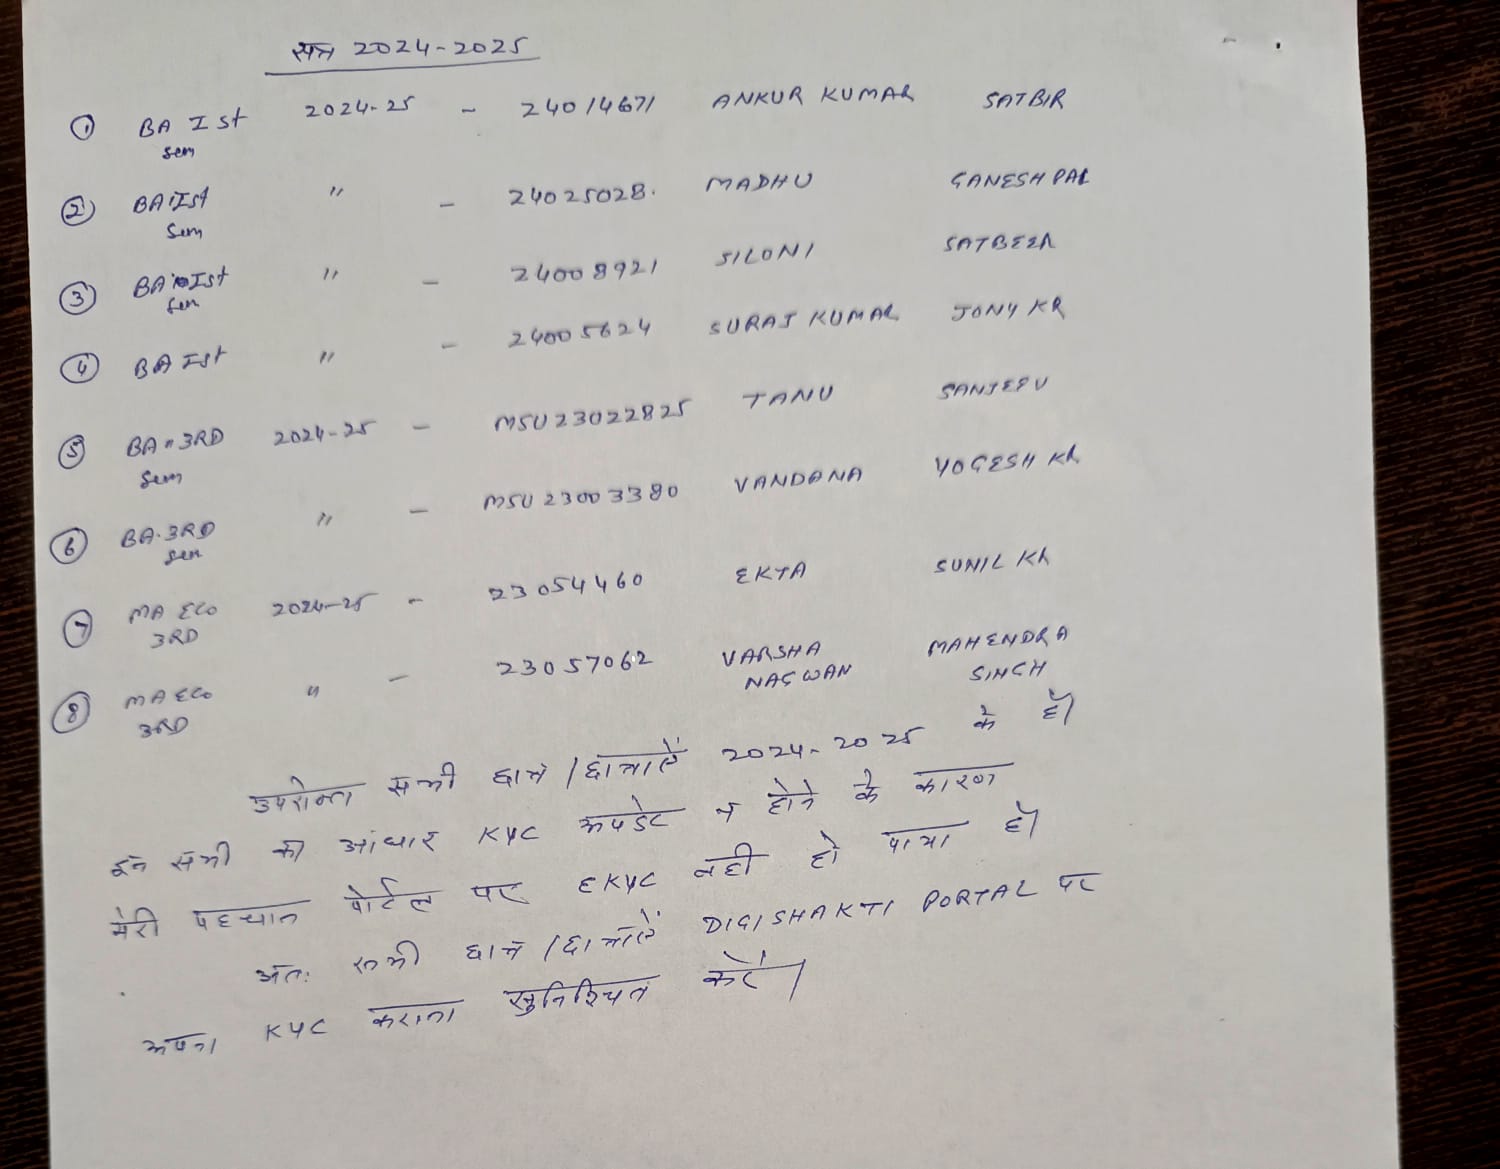 सत्र 2024-2025
① BA I st 2024-25 - 24014671 ANKUR KUMAR SATBIR
Sem
② BA Ist " - 24025028. MADHU GANESH PAL
Sem
③ BA Ist " - 24008921 SILONI SATBEER
Sem
④ BA Ist " - 24005624 SURAJ KUMAR JONY KR
⑤ BA 3RD 2024-25 - MSU23022825 TANU SANJEEV
Sem
⑥ BA.3RD " - MSU23003380 VANDANA YOGESH KR
Sem
⑦ MA ECO 2024-25 - 23054460 EKTA SUNIL KR
3RD
⑧ MA ECO " - 23057062 VARSHA MAHENDRA
3RD NAGWAN SINGH
उपरोक्त सभी छात्र/छात्राऐं 2024-2025 के है।
इन सभी की आधार KYC अपडेट न होने के कारण
मेरी पहचान पोर्टल पर EKYC नही हो पाया है।
अतः सभी छात्र/छात्राऐं DIGISHAKTI PORTAL पर
अपना KYC कराना सुनिश्चित करें।